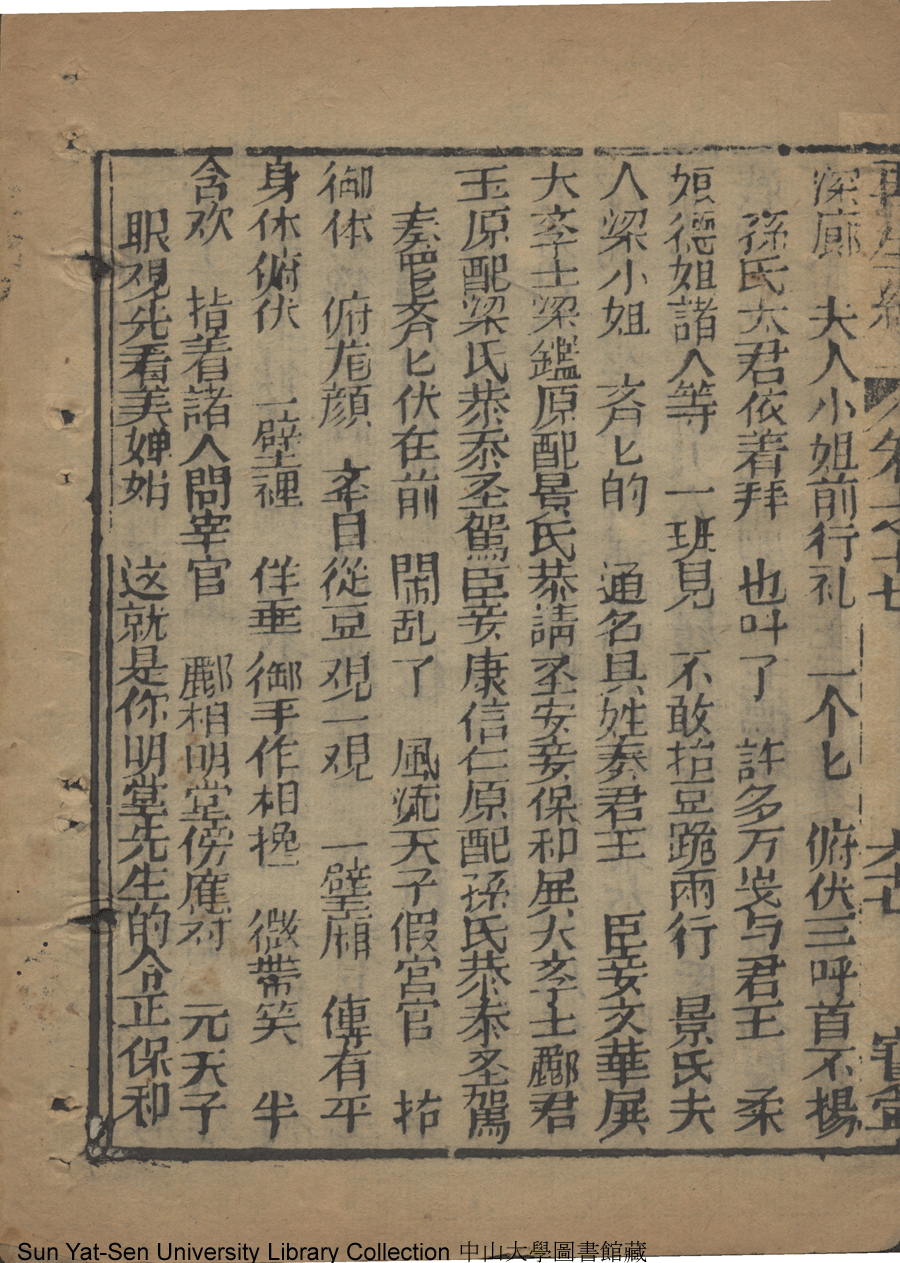 再生緣 卷之十七 六七 寶宝
深廊 夫人小姐前行礼 一个匕 俯伏三呼首不揚
孫氏太君依着拜 也叫了 許多万岁与君王 柔
娘德姐諸人等 一班見 不敢抬豆跪兩行 景氏夫
人梁小姐 斉匕的 通名具姓奏君王 臣妾文華殿
大孝士梁鑑原配景氏恭請圣安妾保和殿大孝士酈君
玉原配梁氏恭叅圣駕臣妾康信仁原配孫氏恭叅圣駕
奏罷斉匕伏在前 閙乱了 風流天子假宮官 抬
御体 俯龙顔 夲目從豆覌一覌 一壁廂 傳有平
身休俯伏 一壁裡 佯垂御手作相搀 微帶笑 半
含欢 指着諸人問宰官 酈相明堂傍應对 元天子
眼覌先看美婵娟 这就是你明堂先生的令正保和
Sun Yat-Sen University Library Collection 中山大學圖書館藏